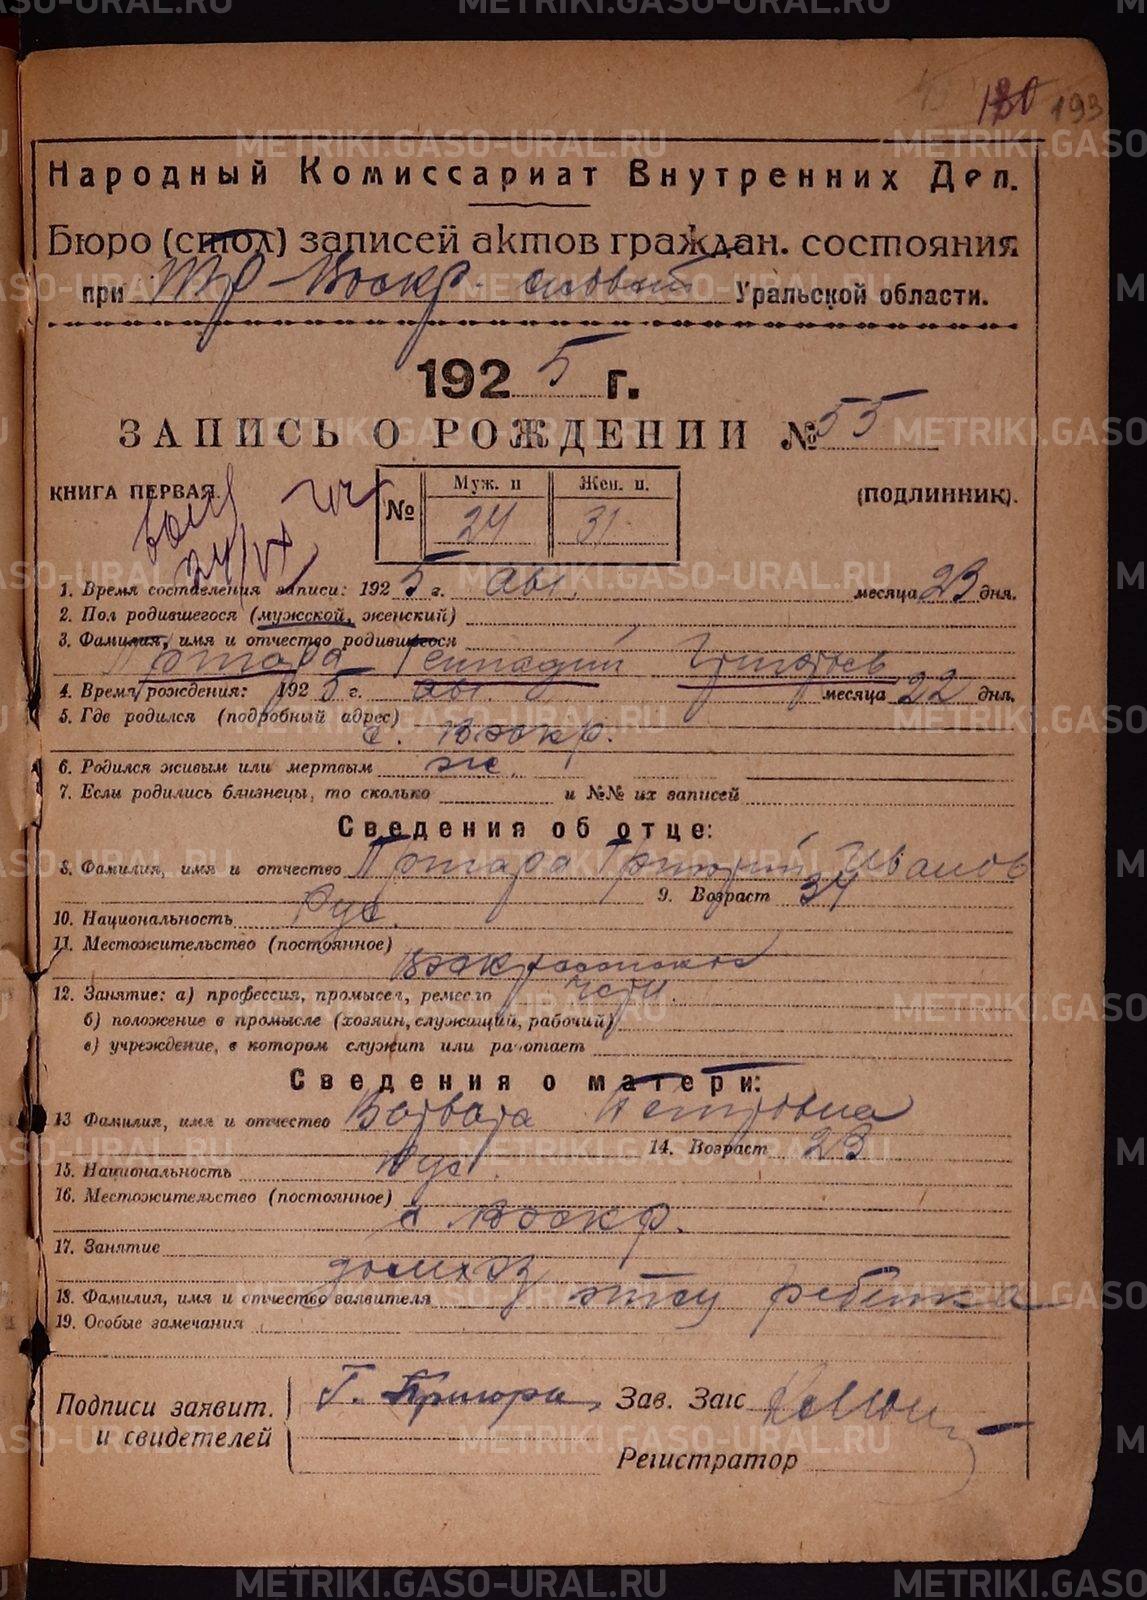 180 193
Народный Комиссариат Внутренних Дел.
Бюро (стол) записей актов граждан. состояния
при Тр-Воскр. Уральской области.
1925 г.
ЗАПИСЬ О РОЖДЕНИИ № 55
КНИГА ПЕРВАЯ. (ПОДЛИННИК).
№ Муж. п Жен. п.
24 31
1. Время составления записи: 1925 г. авг. месяца 23 дня.
2. Пол родившегося (мужской, женский)
3. Фамилия, имя и отчество родившегося
Геннадий Григорьев
4. Время рождения: 1925 г. авг. месяца 22 дня.
5. Где родился (подробный адрес)
с. Воскр.
6. Родился живым или мертвым жив
7. Если родились близнецы, то сколько и №№ их записей
Сведения об отце:
8. Фамилия, имя и отчество Григорий Иванов
9. Возраст 34
10. Национальность Рус.
11. Местожительство (постоянное)
12. Занятие: а) профессия, промысел, ремесло
б) положение в промысле (хозяин, служащий, рабочий)
в) учреждение, в котором служит или работает
Сведения о матери:
13 Фамилия, имя и отчество Варвара Петровна
14. Возраст 23
15. Национальность Рус.
16. Местожительство (постоянное)
с Воскр.
17. Занятие
домхоз
18. Фамилия, имя и отчество заявителя отец ребенка
19. Особые замечания
Подписи заявит. Г. Зав. Загс
и свидетелей
Регистратор
METRIKI.GASO-URAL.RU